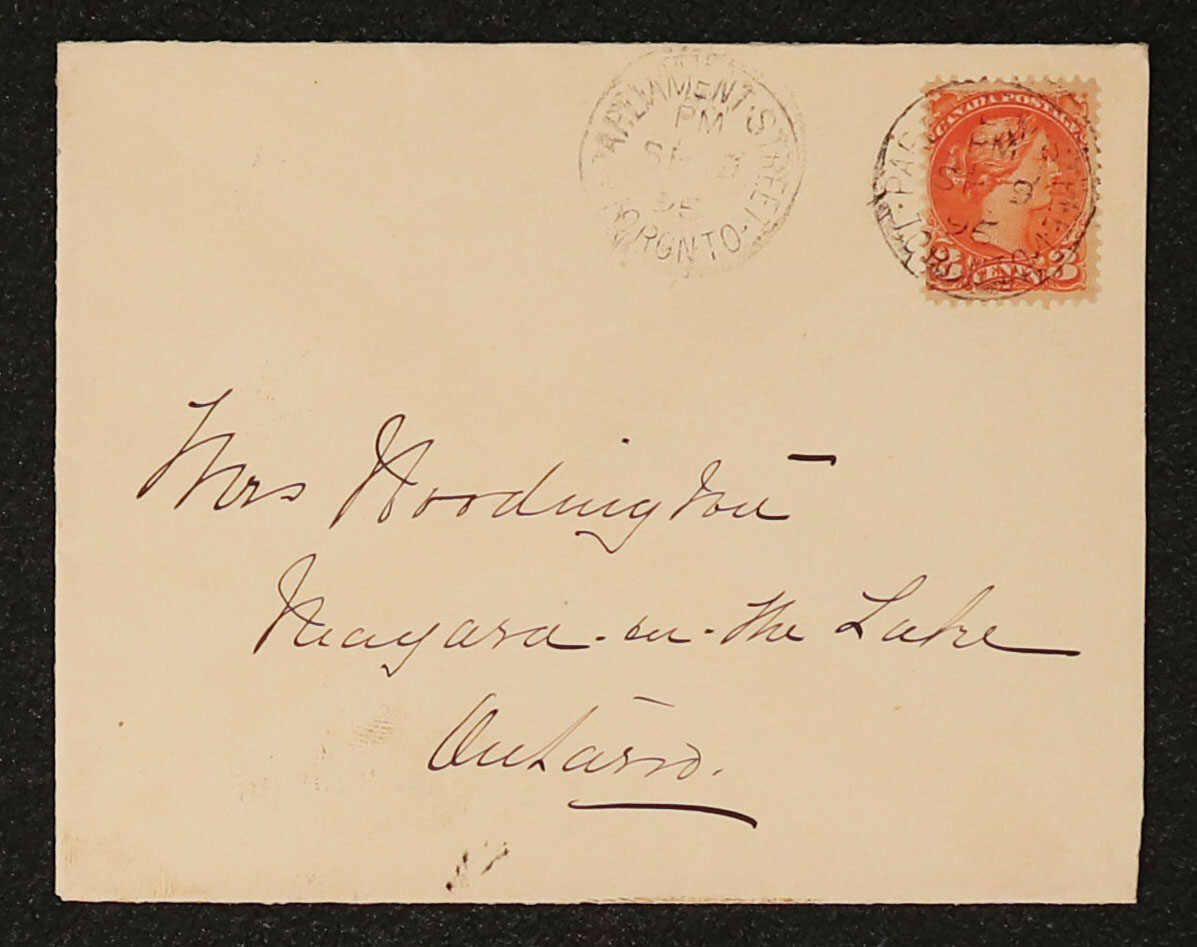 PARLIAMENT·STREET·
PM
SP 3
95
TORONTO·
CANADA POSTAGE
PM
3 CENTS 3
Mrs Hoodington
Niagara-on-the Lake
Ontario.